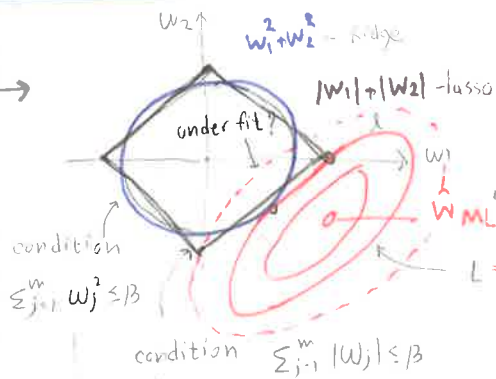 W₂
W₁²+W₂² - Ridge
|W₁|+|W₂| - lasso
under fit?
W₁
W ML
L =
condition
Σⱼ₌₁ᵐ Wⱼ² ≤ β
condition Σⱼ₌₁ᵐ |Wⱼ| ≤ β